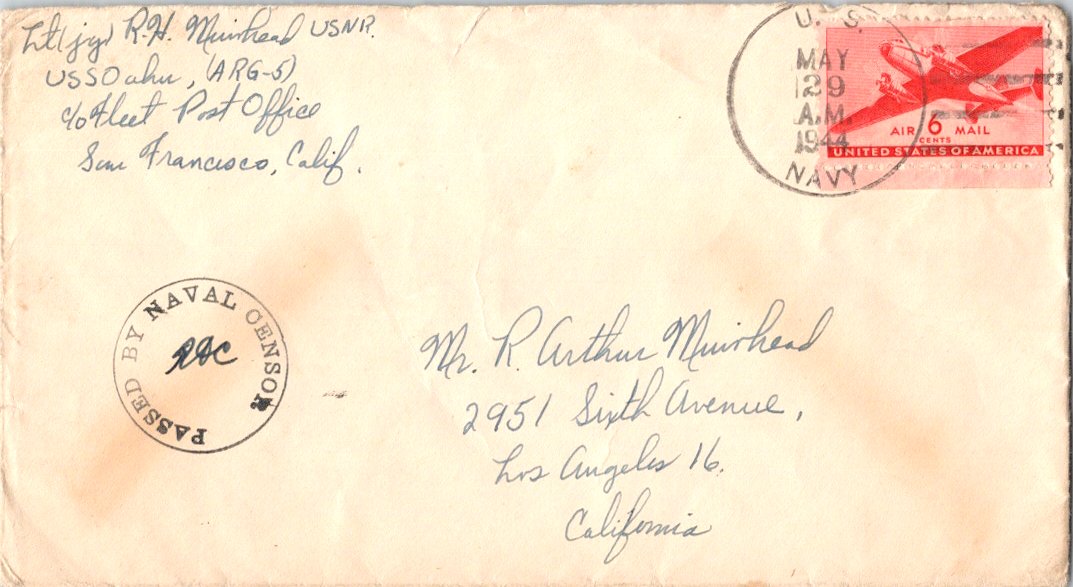 Lt(jg) R.H. Muirhead USNR.
USS Oahu, (ARG-5)
c/o Fleet Post Office
San Francisco, Calif.
U. S.
MAY
29
A.M.
1944
NAVY
AIR 6 MAIL
CENTS
UNITED STATES OF AMERICA
PASSED BY NAVAL CENSOR
Mr. R. Arthur Muirhead
2951 Sixth Avenue,
Los Angeles 16.
California